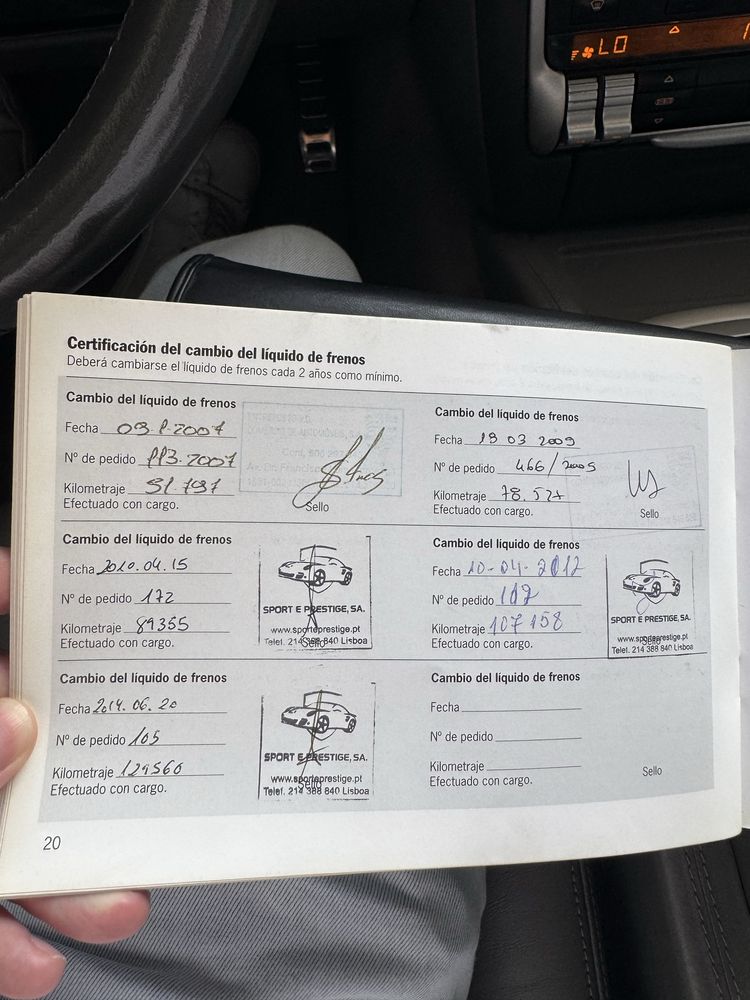 LO
Certificación del cambio del líquido de frenos
Deberá cambiarse el líquido de frenos cada 2 años como mínimo.
Cambio del líquido de frenos
Fecha 2007
Nº de pedido 2007
Kilometraje
Efectuado con cargo.
Sello
Cambio del líquido de frenos
Fecha 19 03 2009
Nº de pedido 466/2009
Kilometraje 78.527
Efectuado con cargo.
Sello
Cambio del líquido de frenos
Fecha 2010.04.15
Nº de pedido 172
Kilometraje 89355
Efectuado con cargo.
SPORT E PRESTIGE, SA.
www.sporteprestige.pt
Sello
Telef. 214 388 840 Lisboa
Cambio del líquido de frenos
Fecha 10-04-2012
Nº de pedido 117
Kilometraje 107158
Efectuado con cargo.
SPORT E PRESTIGE, SA.
www.sporteprestige.pt
Sello
Telef. 214 388 840 Lisboa
Cambio del líquido de frenos
Fecha 2014.06.20
Nº de pedido 105
Kilometraje 129560
Efectuado con cargo.
SPORT E PRESTIGE, SA.
www.sporteprestige.pt
Sello
Telef. 214 388 840 Lisboa
Cambio del líquido de frenos
Fecha
Nº de pedido
Kilometraje
Efectuado con cargo.
Sello
20